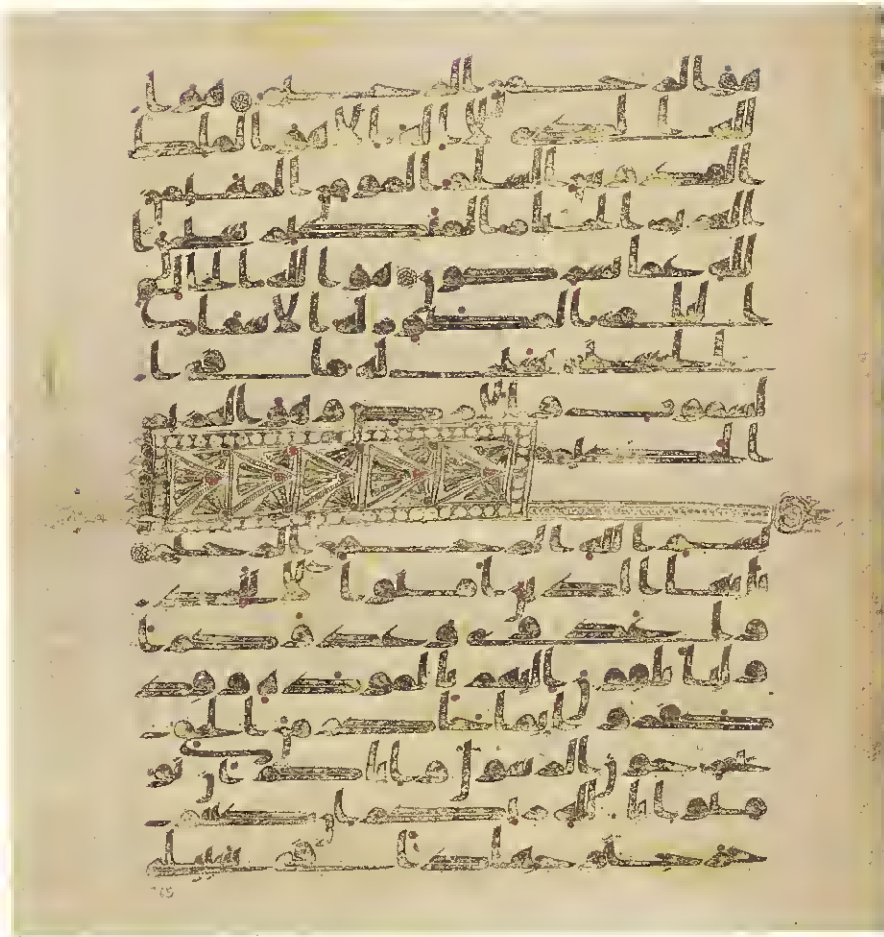 هو الرحمن الرحيم هو ا
لله الذى لا اله الا هو الملك ا
لقدوس السلم المومن المهيمن
العزيز الجبار المتكبر سبحن ا
لله عما يشركون هو الله الخلق
البارى المصور له الاسما
الحسنى يسبح له ما فى ا
لسموت والارض وهو العزيز
الحكيم
بسم الله الرحمن الرحيم
يايها الذين امنوا لا تتخذ
وا عدوى وعدوكم ا
وليا تلقون اليهم بالمودة وقد
كفروا بما جاكم من الحق
يخرجون الرسول واياكم ان تو
منوا بالله ربكم ان كنتم
خرجتم جهدا فى سبيل